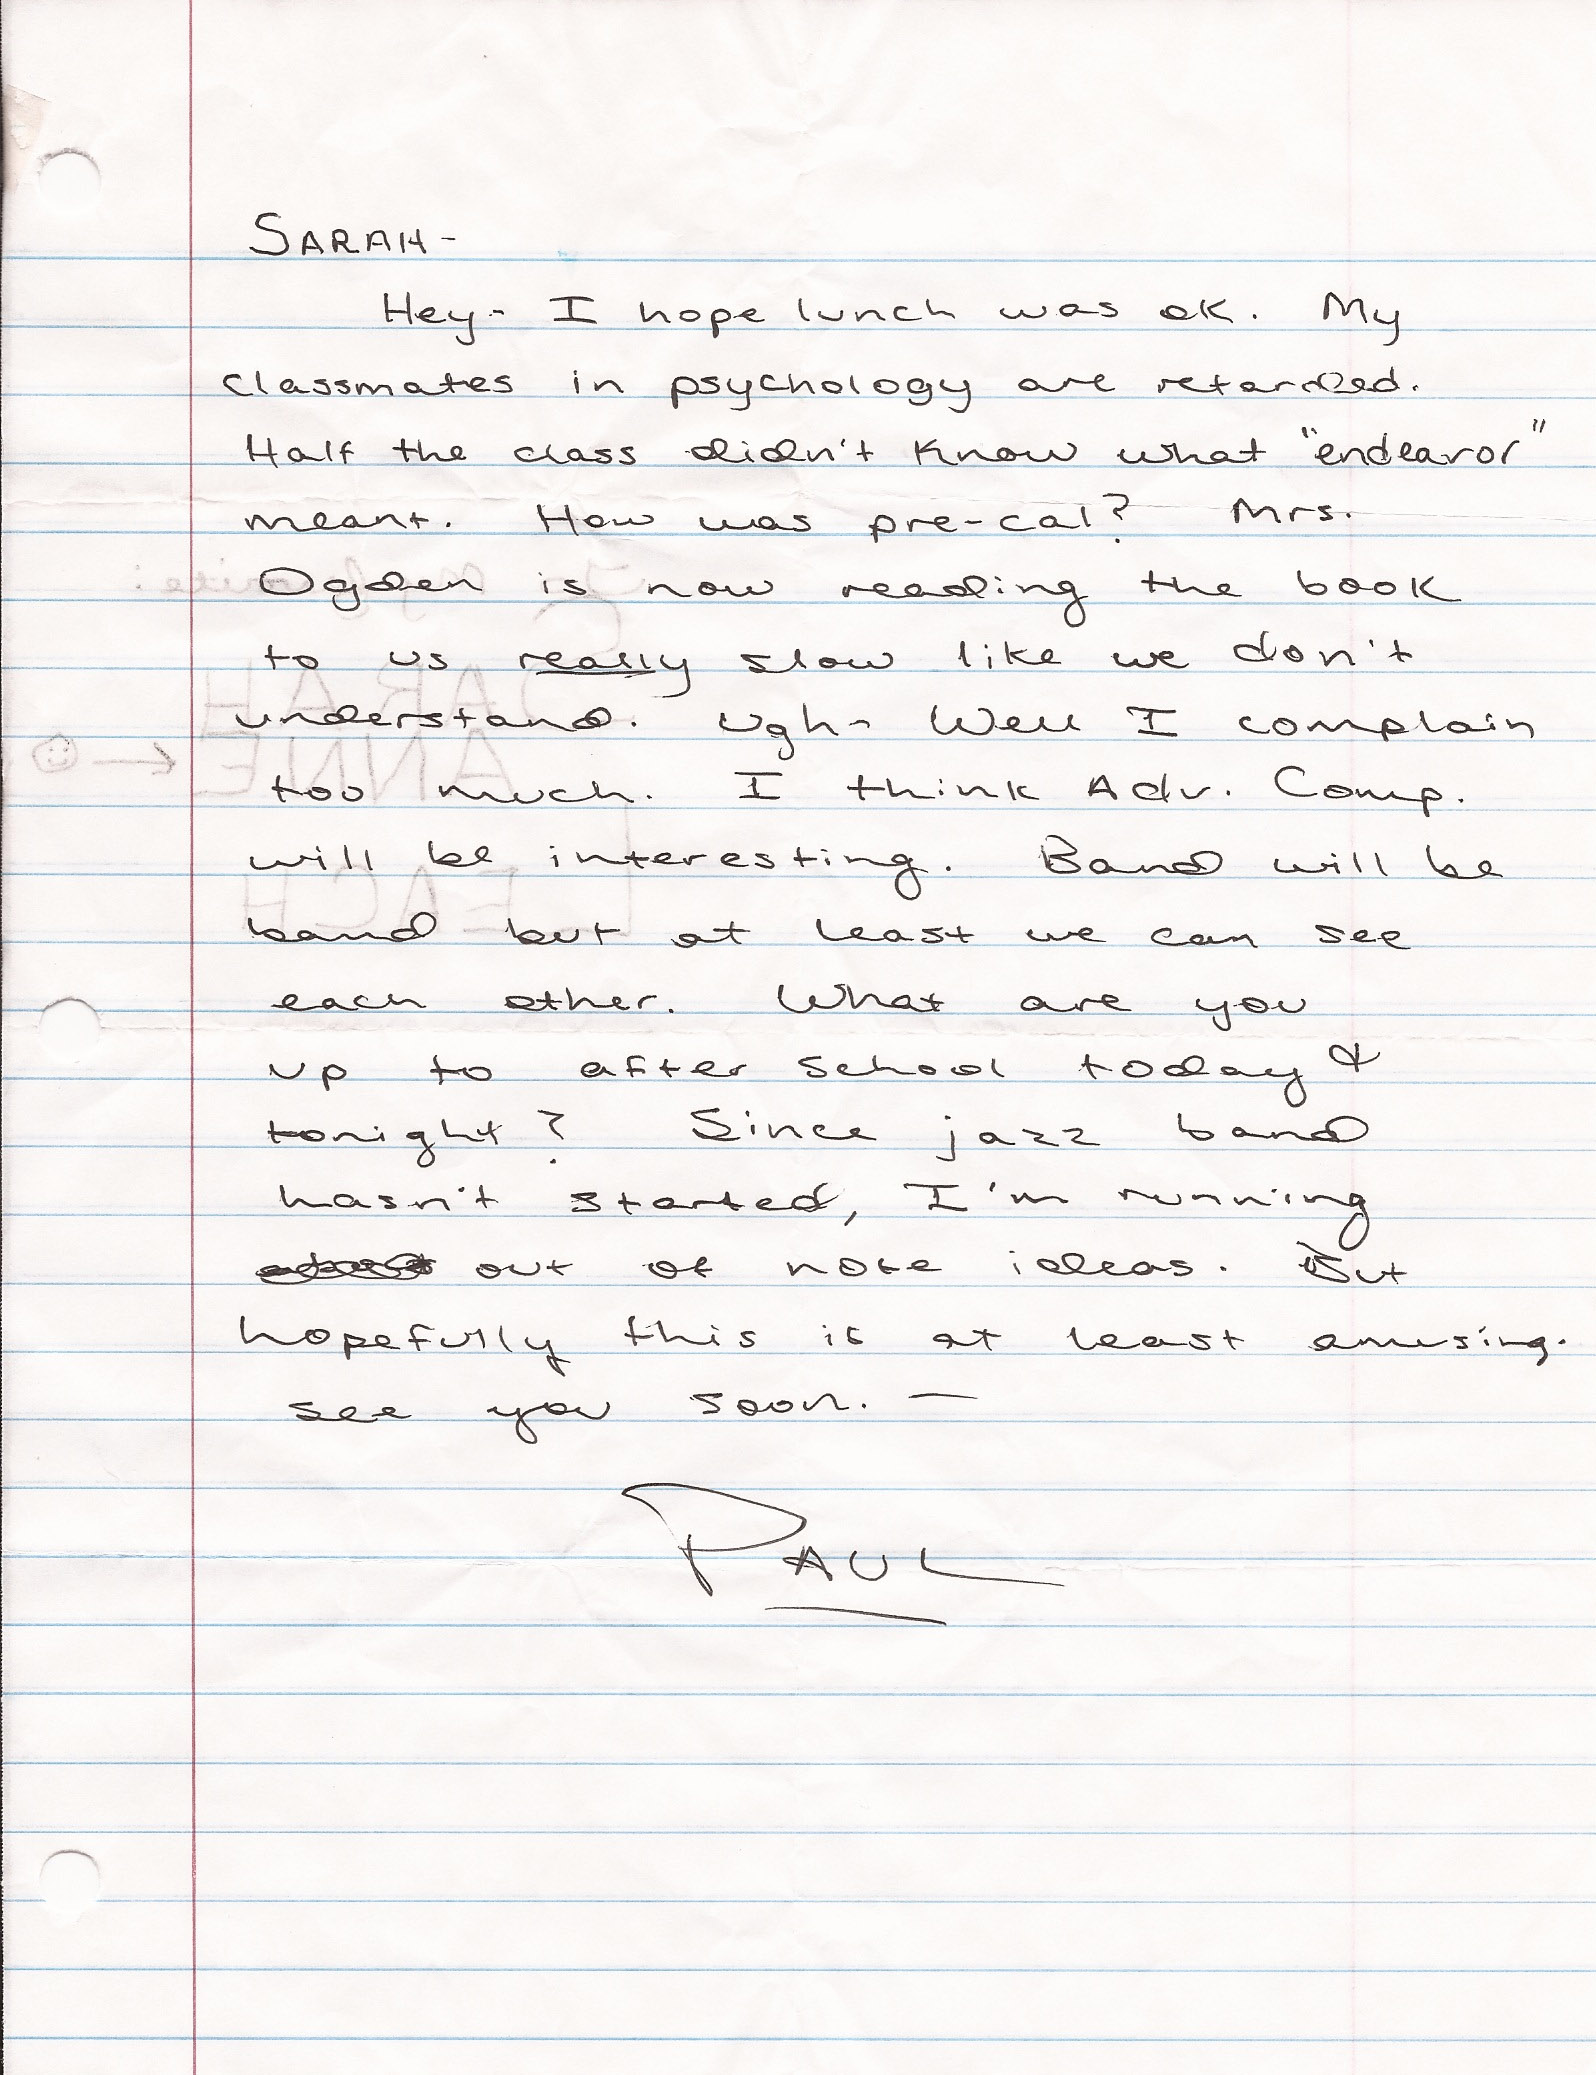 SARAH-
Hey- I hope lunch was ok. My
classmates in psychology are retarded.
Half the class didn't know what "endeavor"
meant. How was pre-cal? Mrs.
Ogden is now reading the book
to us really slow like we don't
understand. Ugh- Well I complain
too much. I think Adv. Comp.
will be interesting. Band will be
band but at least we can see
each other. What are you
up to after school today &
tonight? Since jazz band
hasn't started, I'm running
out of note ideas. But
hopefully this is at least amusing.
see you soon. —
PAUL